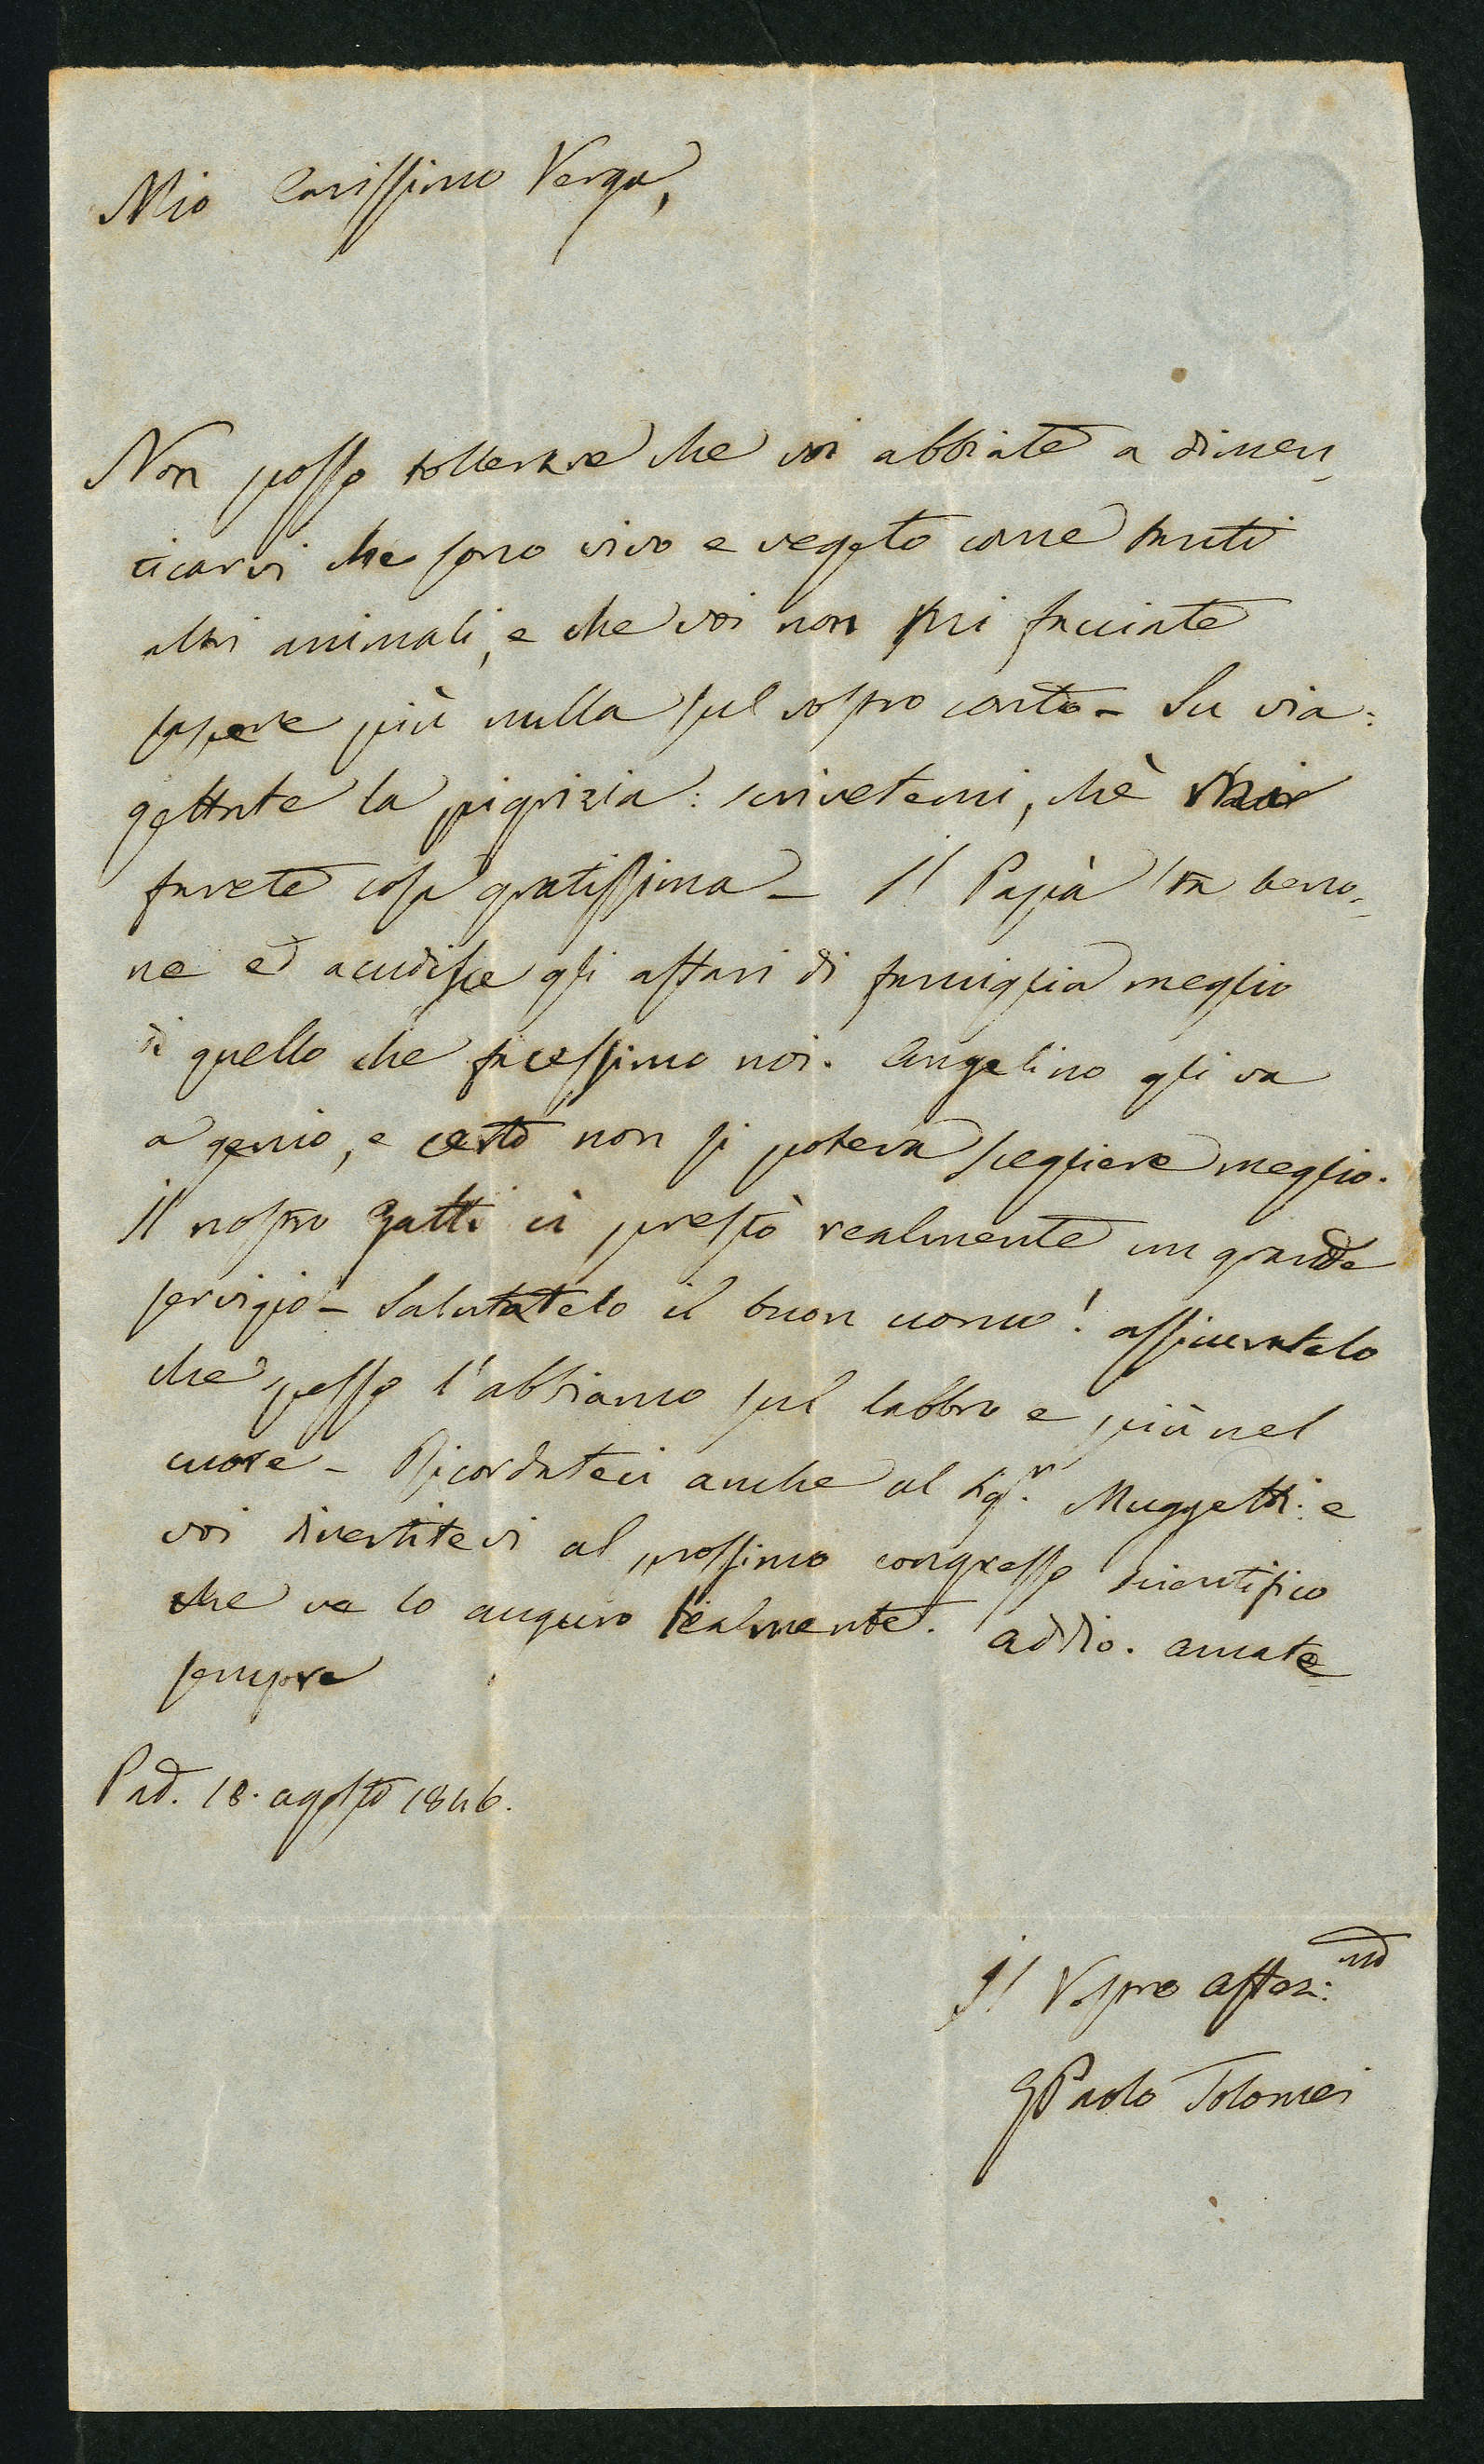 Mio Carissimo Verga,
Non posso tollerare che voi abbiate a dimen-
ticarvi che sono vivo e vegeto come tanti
altri animali, e che voi non mi facciate
sapere più nulla sul vostro conto - Su via:
gettate la pigrizia: scrivetemi, chè mi
farete cosa gratissima - Il Papà sta beno-
ne ed accudisce gli affari di famiglia meglio
di quello che facessimo noi. Angelino gli va
a genio, e certo non si poteva scegliere meglio.
Il nostro Gatti ci prestò realmente un grande
servigio - Salutatelo il buon uomo! assicuratelo
che spesso l'abbiamo sul labbro e più nel
cuore - Ricordateci anche al Sigr. Muggetti: e
voi divertitevi al prossimo congresso scientifico
che ve lo auguro realmente. addio. amate
sempre
Pad. 18. agosto 1846.
Il Vostro affez:mo
GPaolo Tolomei